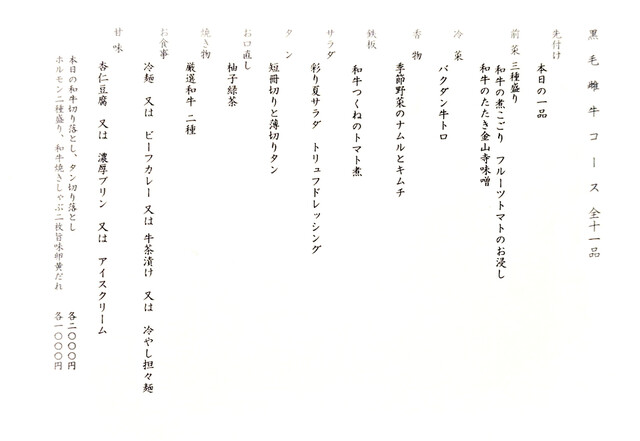 黒毛雌牛コース 全十一品
先付け
本日の一品
前菜三種盛り
和牛の煮こごり フルーツトマトのお浸し
和牛のたたき金山寺味噌
冷菜
バクダン牛トロ
香物
季節野菜のナムルとキムチ
鉄板
和牛つくねのトマト煮
サラダ
彩り夏サラダ トリュフドレッシング
タン
短冊切りと薄切りタン
お口直し
柚子緑茶
焼き物
厳選和牛 二種
お食事
冷麺 又は ビーフカレー 又は 牛茶漬け 又は 冷やし担々麺
甘味
杏仁豆腐 又は 濃厚プリン 又は アイスクリーム
本日の和牛切り落とし、タン切り落とし 各二〇〇〇円
ホルモン二種盛り、和牛焼きしゃぶ二枚旨味卵黄だれ 各一〇〇〇円